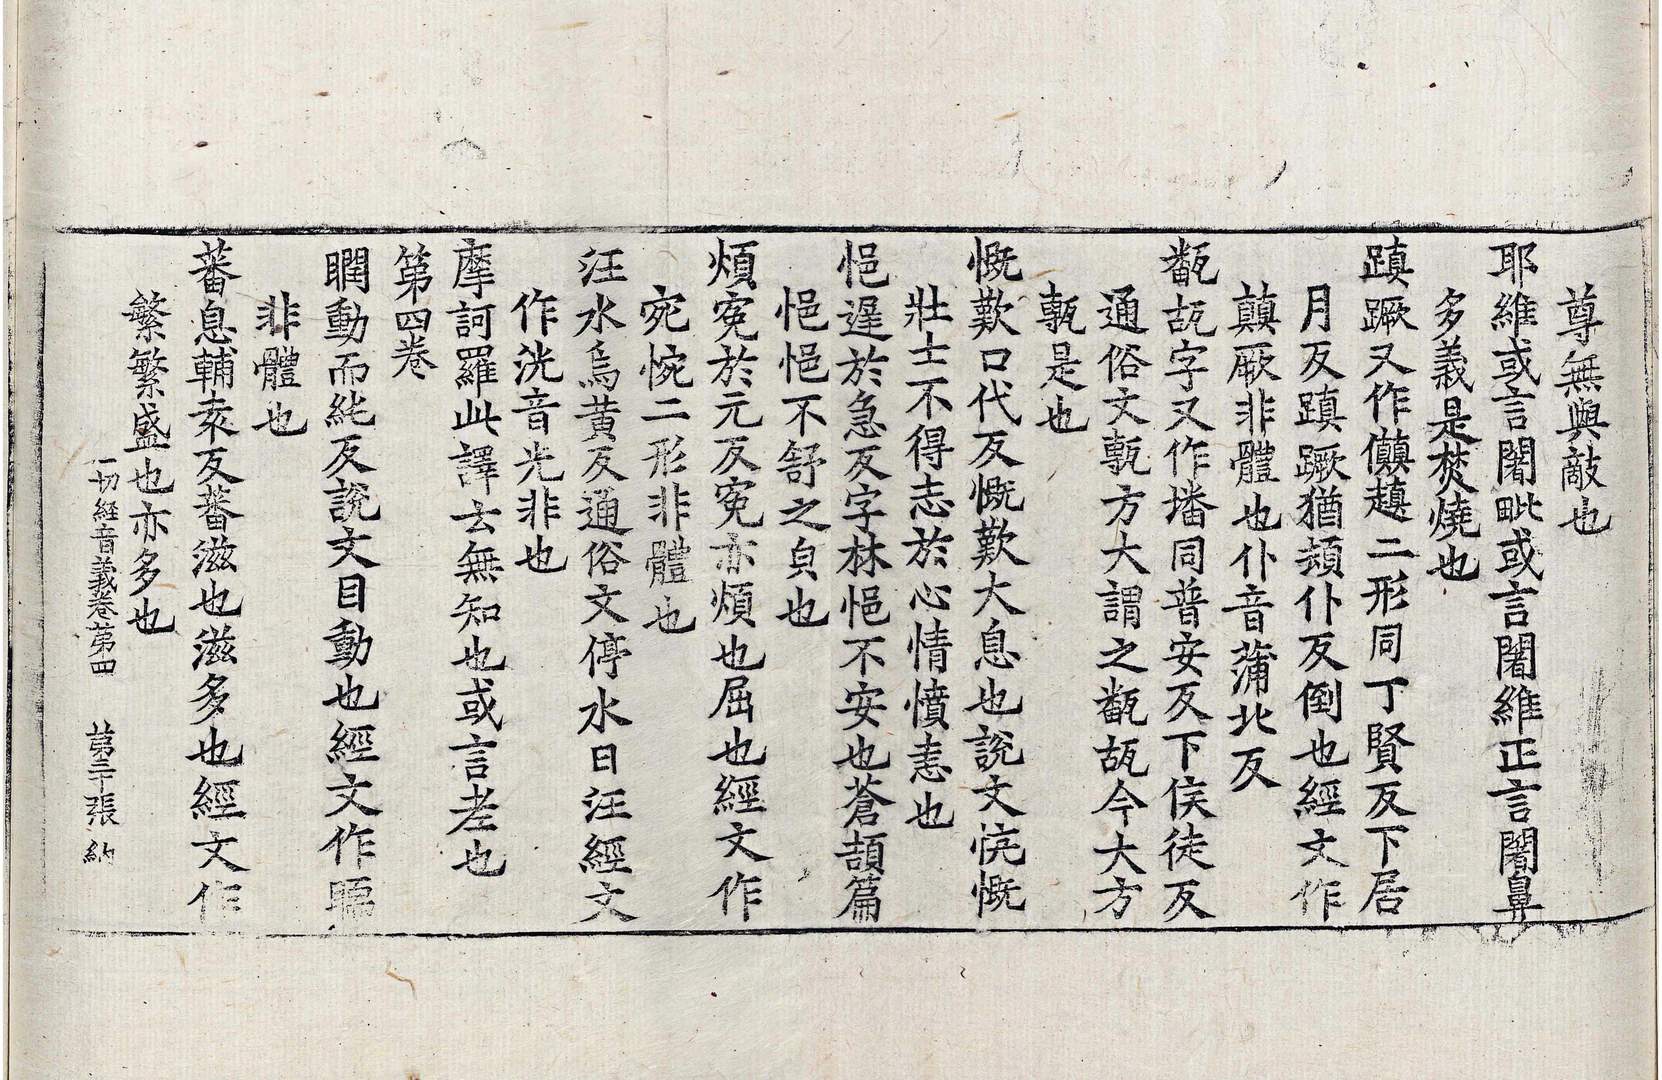 尊無與敵也
耶維或言闍毗或言闍維正言闍鼻
多義是焚燒也
蹎蹶又作傎趚二形同丁賢反下居
月反蹎蹶猶頓仆反倒也經文作
蔵厥非體也仆音蒲北反
甂瓳字又作墦同普安反下侯徒反
通俗文甎方大謂之甂瓳今大方
甎是也
慨歎口代反慨歎大息也說文忼慨
壯士不得志於心情憤恚也
悒遲於急反字林悒不安也蒼頡篇
悒悒不舒之皃也
煩冤於元反冤亦煩也屈也經文作
宛惋二形非體也
汪水烏黃反通俗文停水曰汪經文
作洸音光非也
摩訶羅此譯云無知也或言老也
第四卷
瞤動而純反說文目動也經文作
非體也
蕃息輔袁反蕃滋也滋多也經文作
繁繁盛也亦多也
一切經音義卷第四 第二十張 納